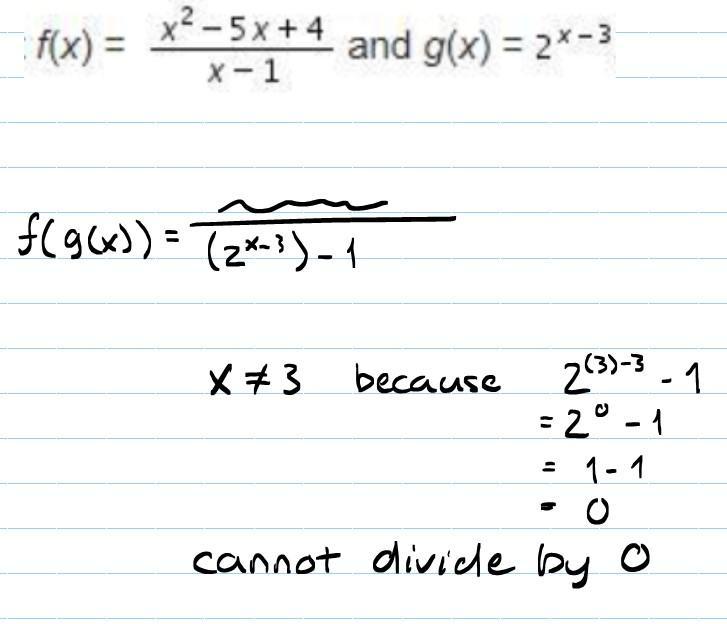 f(x) = (x² - 5x + 4)/(x - 1) and g(x) = 2ˣ⁻³
f(g(x)) = /((2ˣ⁻³) - 1)
x ≠ 3 because 2⁽³⁾⁻³ - 1
= 2⁰ - 1
= 1 - 1
= 0
cannot divide by 0